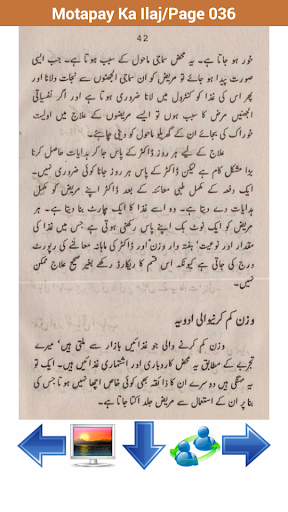 Motapay Ka Ilaj/Page 036
42
خور ہو جاتا ہے۔ یہ محض سماجی ماحول کے سبب ہوتا ہے۔ جب ایسی
صورت پیدا ہو جائے تو مریض کو ان سماجی الجھنوں سے نجات دلانا اور
پھر اس کی غذا کو کنٹرول میں لانا ضروری ہوتا ہے اور اگر نفسیاتی
الجھنیں مرض کا سبب ہوں تو ایسے مریضوں کے علاج میں اولیت
خوراک کی بجائے ان کے گھریلو ماحول کو دینی چاہئے۔
علاج کے لیے ہر روز ڈاکٹر کے پاس جا کر ہدایات حاصل کرنا
بڑا مشکل کام ہے لیکن ڈاکٹر کے پاس ہر روز جانا کوئی ضروری نہیں۔
ایک دفعہ کے مکمل طبی معائنہ کے بعد ڈاکٹر اپنے مریض کو مکمل
ہدایات دے دیتا ہے۔ وہ اسے غذا کا ایک چارٹ بنا دیتا ہے۔ ہر
مریض کو ایک نوٹ بک اپنے پاس رکھنی ہوتی ہے جس میں غذا کی
مقدار اور نوعیت' ہفتہ وار وزن اور ڈاکٹر کی ماہانہ معائنے کی رپورٹ
درج کی جاتی ہے کیونکہ اس قسم کا ریکارڈ رکھے بغیر صحیح علاج ممکن
نہیں۔
وزن کم کرنیوالی ادویہ
وزن کم کرنے والی جو غذائیں بازار سے ملتی ہیں' میرے
تجربے کے مطابق یہ محض کاروباری اور اشتہاری غذائیں ہیں۔ ایک تو
یہ مہنگی ہیں دوسرے ان کا ذائقہ بھی کوئی خاص اچھا نہیں ہوتا جس کی
بنا پر ان کے استعمال سے مریض جلد اکتا جاتا ہے۔